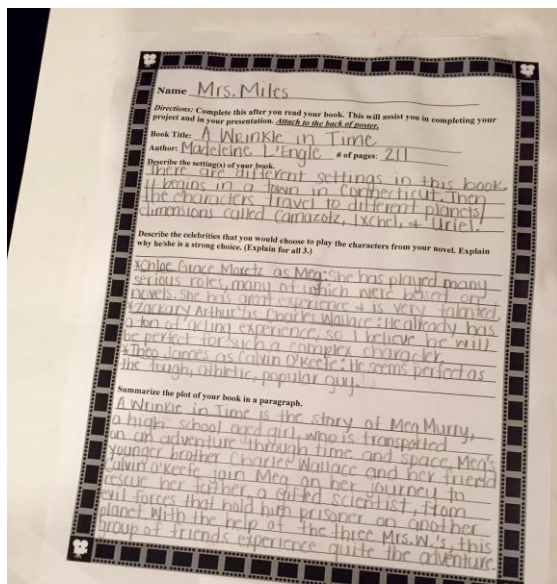 Name Mrs. Miles
Directions: Complete this after you read your book. This will assist you in completing your
project and in your presentation. Attach to the back of poster.
Book Title: A Wrinkle in Time
Author: Madeleine L'Engle # of pages: 211
Describe the setting(s) of your book.
There are different settings in this book.
It begins in a town in Connecticut. Then
the characters travel to different planets/
dimensions called Camazotz, Ixchel, & Uriel.
Describe the celebrities that you would choose to play the characters from your novel. Explain
why he/she is a strong choice. (Explain for all 3.)
*Chloe Grace Moretz as Meg: She has played many
serious roles, many of which were based on
novels. She has great experience & is very talented.
*Zackary Arthur as Charles Wallace: He already has
a ton of acting experience, so I believe he will
be perfect for such a complex character.
*Theo James as Calvin O'Keefe: He seems perfect as
the tough, athletic, popular guy.
Summarize the plot of your book in a paragraph.
A Wrinkle in Time is the story of Meg Murry,
a high-school aged girl, who is transported
on an adventure through time and space. Meg's
younger brother Charles Wallace and her friend
Calvin O'Keefe join Meg on her journey to
rescue her father, a gifted scientist, from
evil forces that hold him prisoner on another
planet. With the help of the three Mrs. W.'s, this
group of friends experience quite the adventure.